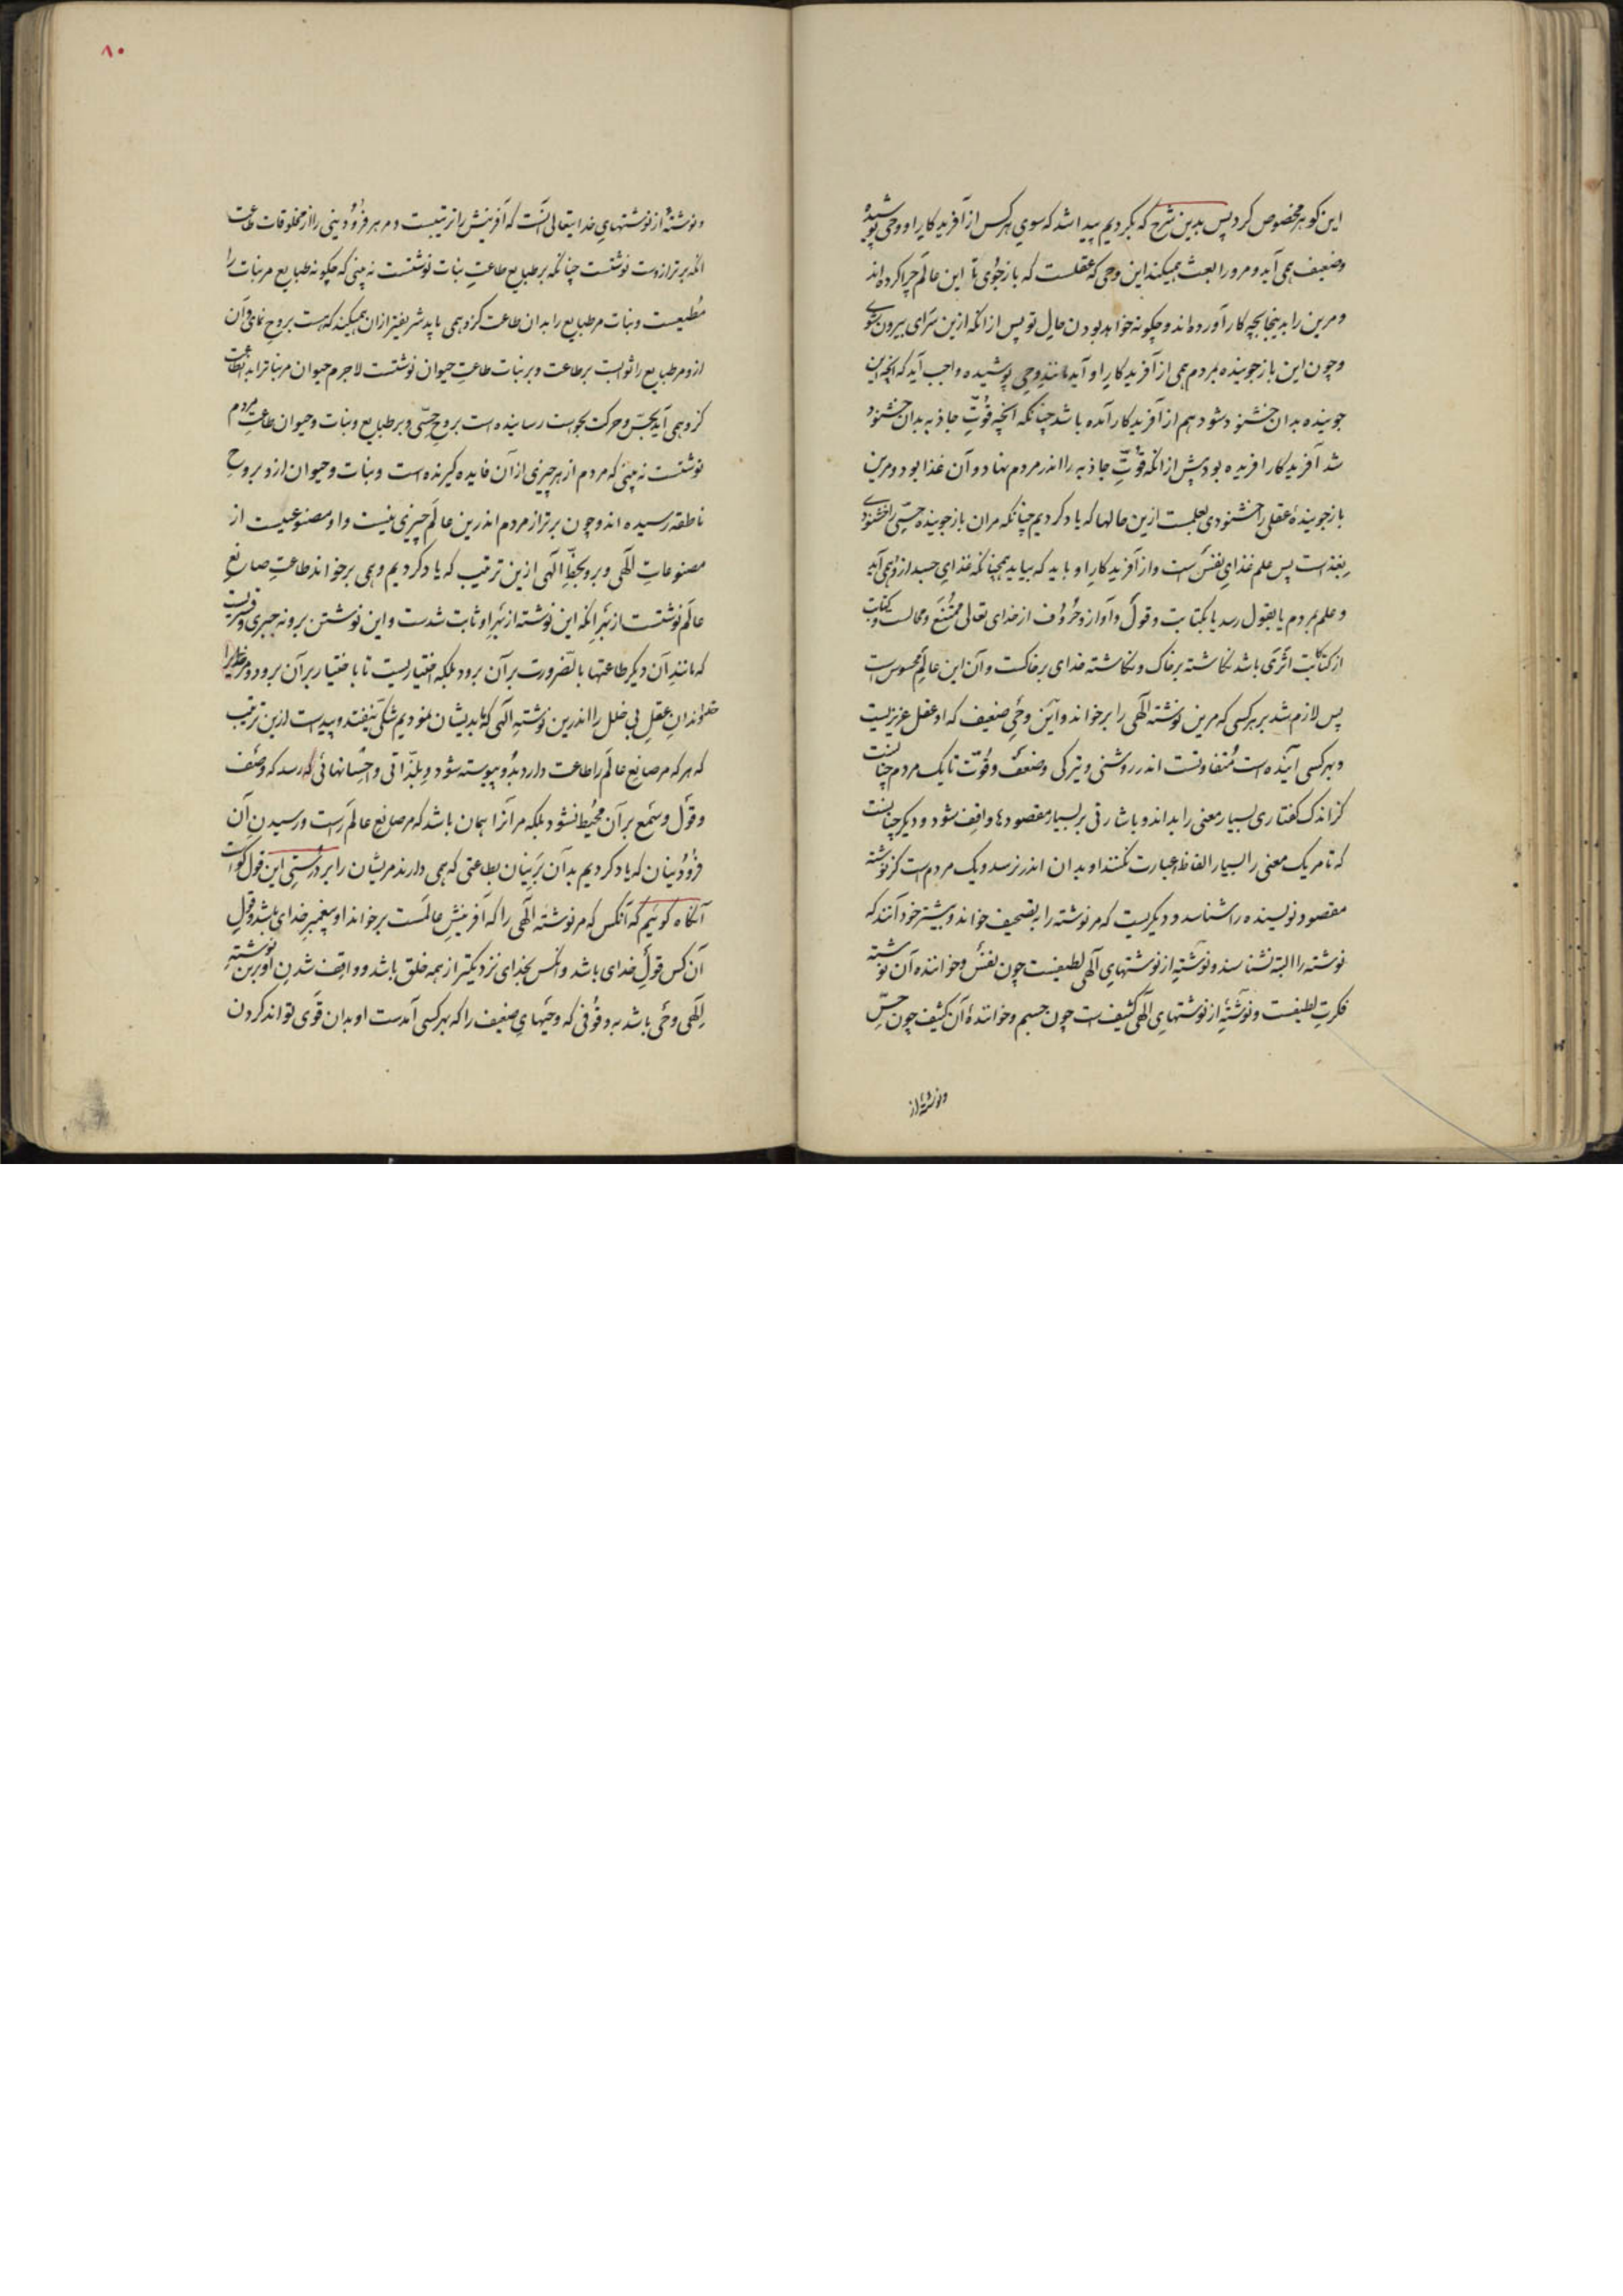 این گوهر مخصوص کرد پس بدین شرح که بکردیم پیدا شد که سوی هر کس از آفریدگار او وحی پوشیده
وضعیف همی آید و مرورا بعث همیکند این وحی که عقلست که باز جوی تا این عالم چرا کرده اند
و مرین را بدینجا بچه کار آورده اند و چگونه خواهد بودن حال تو پس از انکه ازین سرای بیرون شوی
وچون این باز جوینده بمردم همی از آفریدگار او آید مانند وحی پوشیده واجب آید که انچه این
جوینده بدان خشنود شود هم از آفریدگار آمده باشد چنانکه انچه قوّتِ جاذبه بدان خشنود
شد آفریدگار افریده بود پیش از انکه قوّتِ جاذبه را اندر مردم نهاد و آن غذا بود و مرین
باز جویندهٔ عقلی را خشنودی بعلمست ازین حالها که یاد کردیم چنانکه مران باز جوینده حسّی را خشنودی
بغذاست پس علم غذای نفس است و از آفریدگار او باید که بیاید همچنانکه غذای جسد ازو همی آید
و علم بمردم یا بقول رسد یا بکتابت و قول و آواز و حروف از خدای تعالی ممتنع و محالست و کتابت
از کتابت اثری باشد نگاشته بر خاک و نگاشته خدای بر خاکست و آن این عالم محسوس است
پس لازم شد بر هر کسی که مرین نوشته الهی را بر خواند و آین وحی ضعیف که او عقل عزیزیست
و بهر کسی آینده است متفاوتست اندر روشنی و تیرگی و ضعف و قوّت تا یک مردم چنانست
کز اندک گفتاری بسیار معنی را بداند و باشارتی بر بسیار مقصودها واقف شود و دیگر چنانست
که تا مر یک معنی را بسیار الفاظ عبارت نکنند او بدان اندر نرسد و یک مردم است کز نوشته
مقصود نویسنده را شناسد و دیگریست که مر نوشته را بتصحیف خواند و بیشتر خود آنند که
نوشته را البته نشناسند و نوشتهٔ از نوشتهای آلهی لطیفست چون نفس و خواننده آن نوشته
فکرت لطیفست و نوشتهٔ از نوشتهای الهی کثیف است چون جسم و خوانندهٔ آن کثیف چون حسّ
و نوشتهٔ از
۸۰
و نوشتهٔ از نوشتهای خدایتعالی آنست که آفرینش را ترتیبست و مر هر فرودینی را از مخلوقات طاعت
انکه برتر ازوست نوشتست چنانکه بر طبایع طاعتِ نبات نوشتست نه بینی که چگونه طبایع مر نبات را
مطیعست و نبات مر طبایع را بدان طاعت کزو همی یابد شریفتر ازان همیکند که هست بروح نمائی و آن
ازو مر طبایع را ثوابست بر طاعت و بر نبات طاعتِ حیوان نوشتست لاجرم حیوان مر نباترا بدانطاعت
کزو همی آید بحسّ و حرکت بخواست رساینده است بروح حسّی و بر طبایع و نبات و حیوان طاعتِ مردم
نوشتست نه بینی که مردم از هر چیزی ازان فایده گیرنده است و نبات و حیوان ازو بروحِ
ناطقه رسیده اند و چون برتر از مردم اندرین عالم چیزی نیست و او مصنوعیست از
مصنوعاتِ الهی و برو بخطّ الهی ازین ترتیب که یاد کردیم وهمی بر خواند طاعتِ صانعِ
عالم نوشتست از بهرِ انکه این نوشته از بهرِ او ثابت شدست و این نوشتن برو نه جبری و قسریست
که مانند آن دیگر طاعتها بالضرورت بر آن برود بلکه اختیاریست تا باختیار بر آن برود و مر
خداوندانِ عقلِ بی خلل را اندرین نوشتهِ الهی که بدیشان نمودیم شکی نیفتد و پیداست ازین ترتیب
که هر که مر صانع عالم را طاعت دارد بدو پیوسته شود و بلذّاتی و احسانهائی رسد که وصف
و قول و سمع بر آن محیط نشود بلکه مر آنرا همان باشد که مر صانع عالم راست و رسیدنِ آن
فرودینان که یاد کردیم بدان برینان بطاعتی که همی دارند مریشان را بر درستی این قول گواست
آنگاه گوئیم که آنکس که مر نوشتهِ الهی را که آفرینشِ عالمست بر خواند او پیغمبر خدای باشد و قولِ
آن کس قولِ خدای باشد و انکس بخدای نزدیکتر از همه خلق باشد و واقف شدنِ او برین نوشتهِ
الهی وحی باشد بدو وقوفی که وحیهای ضعیف را که بهر کسی آمدست او بدان قوی تواند کردن